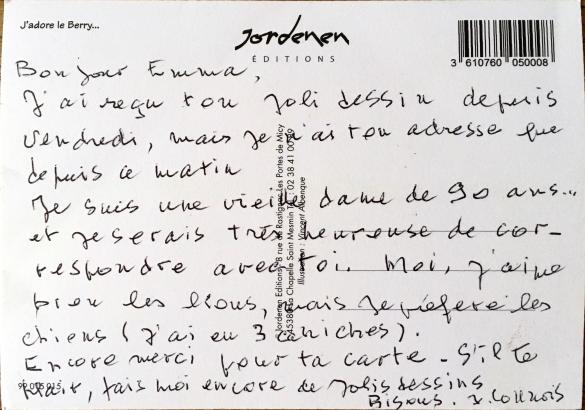 J'adore le Berry...
Jordenen
ÉDITIONS
3 610760 050008
Bonjour Emma,
J'ai reçu ton joli dessin depuis
vendredi, mais je n'ai ton adresse que
depuis ce matin
Je suis une vieille dame de 90 ans...
et je serais très heureuse de cor-
respondre avec toi. Moi, j'aime
bien les lions, mais je préfère les
chiens (j'ai eu 3 caniches).
Encore merci pour ta carte - S'il te
plaît, fais moi encore de jolis dessins
Bisous.
Jordenen Editions, 8 rue de Rostignac Les Portes de Micy
45380 La Chapelle Saint Mesmin Tél : 02 38 41 00
Illustration : Vincent